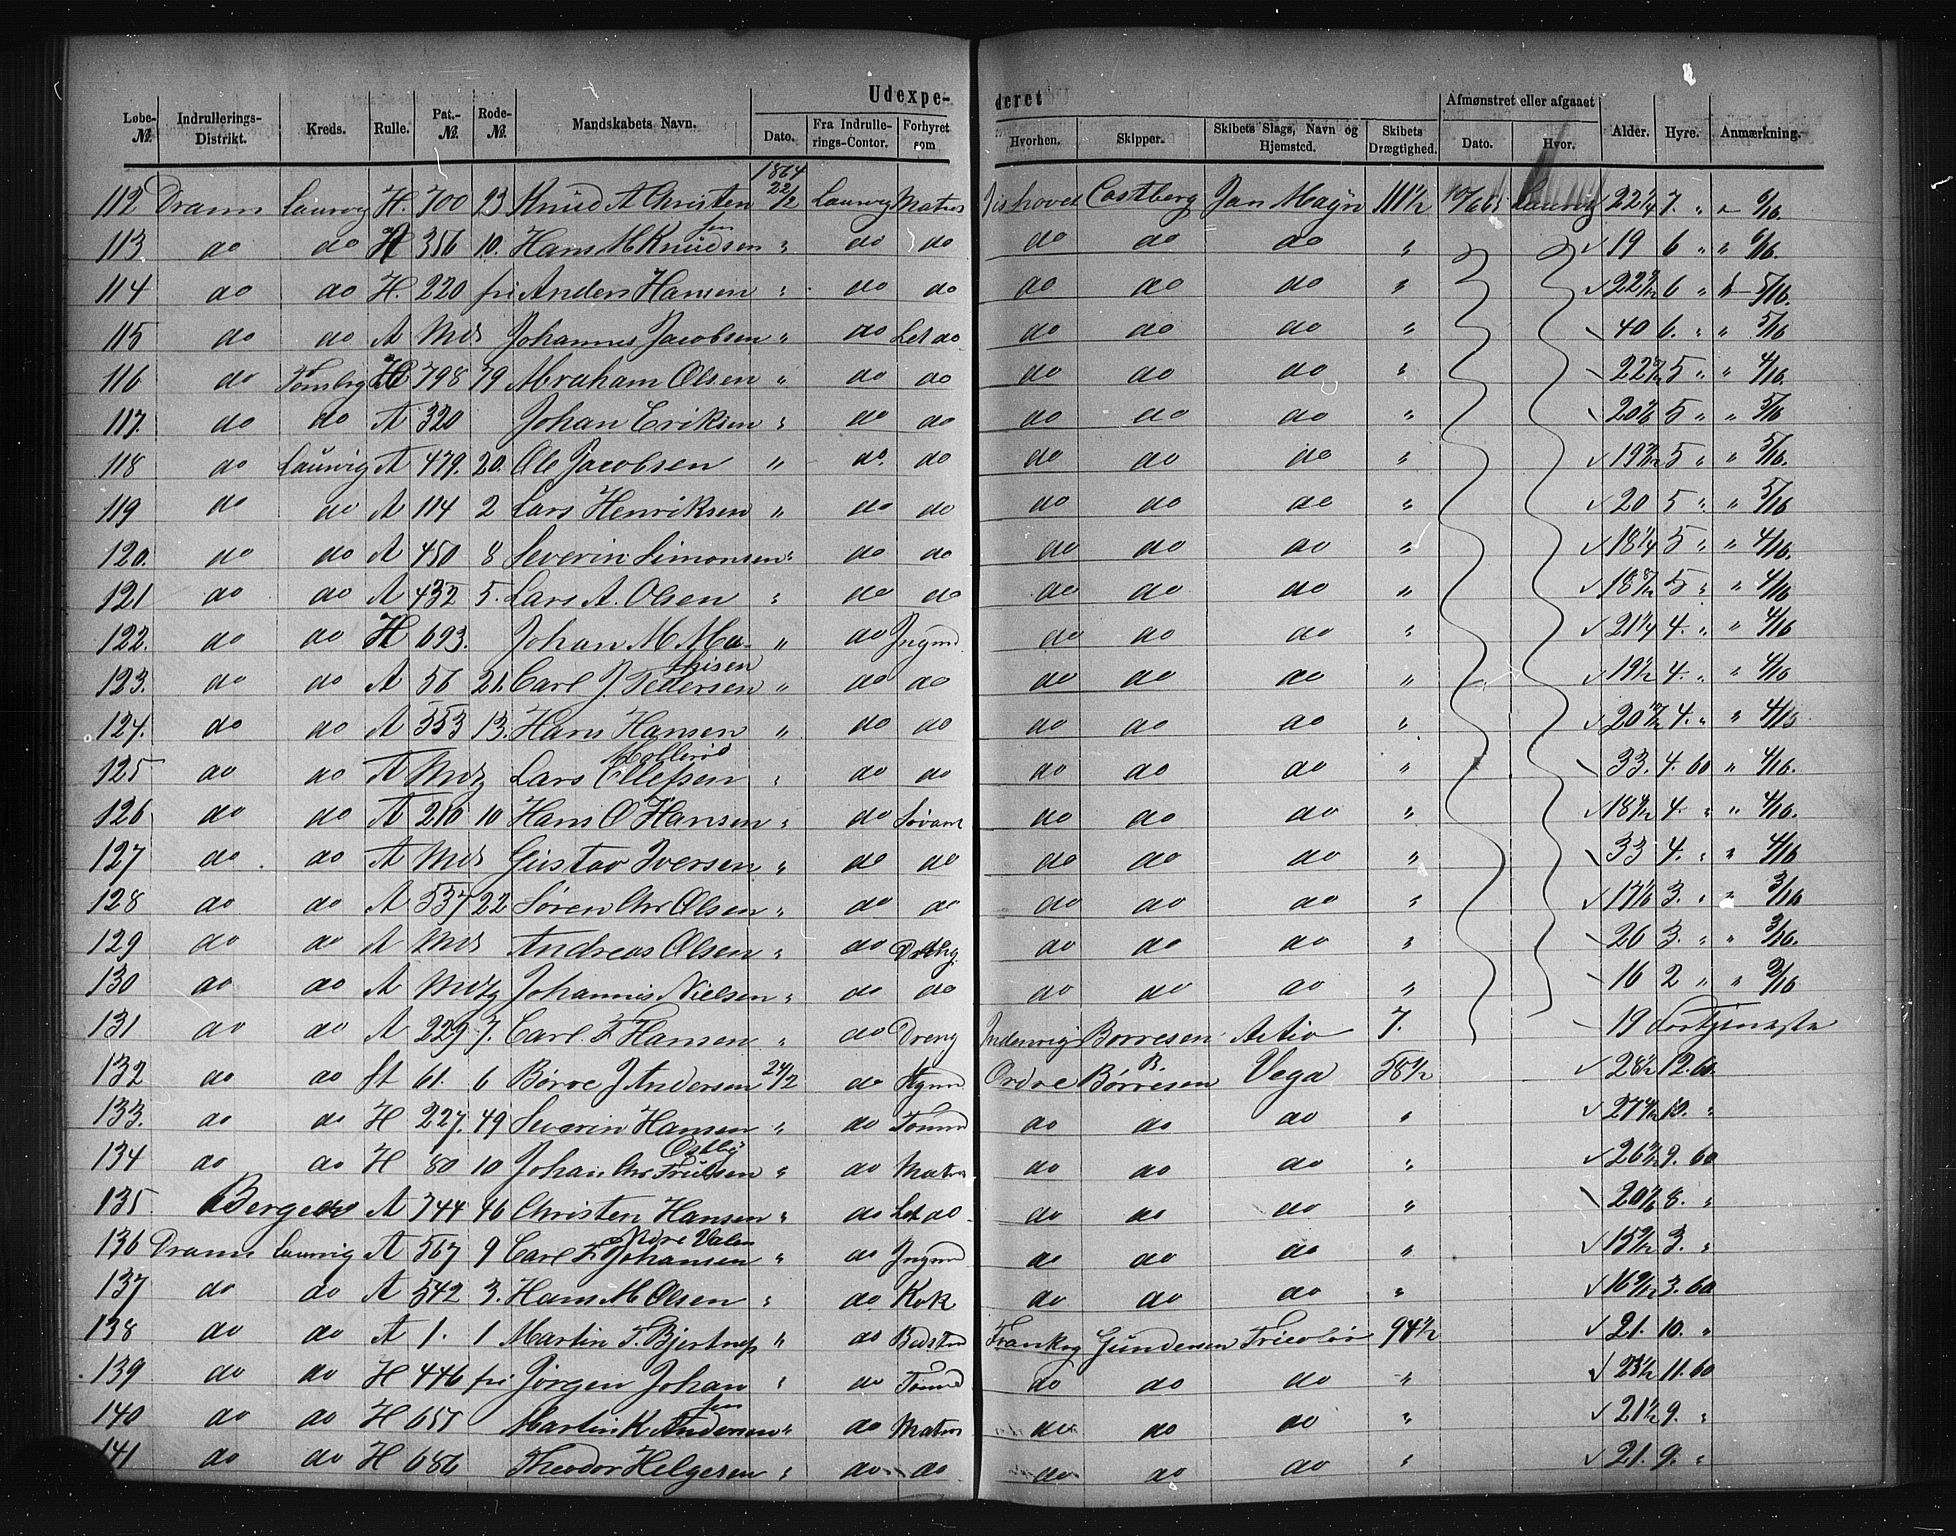 Udexpe- deret
Løbe- № Indrullerings- Distrikt. Kreds. Rulle. Pat.- № Rode- № Mandskabets Navn. Dato. Fra Indrulle- rings-Contor. Forhyret som Hvorhen. Skipper. Skibets Slags, Navn og Hjemsted. Skibets Drægtighed. Afmønstret eller afgaaet Dato. Hvor. Alder. Hyre. Anmærkning.
1864
112 Dram Laurvig H. 700 23 Knud A Christensen 22/2 Laurvig Matros Ishavet Castberg Jan Mayn 111 1/2 Laurvig 22 1/4 7. " 6/16.
113 do do H 356 10. Hans M Knudsen " do do do do do " 19 6 " " 6/16.
114 do do H. 220 fri Anders Hansen " do do do do do " 6 " 5/16.
115 do do A Mds Johannes Jacobsen " do Let do do do do " 40 6. " " 5/16
116 do Tønsbrg H 798 79 Abraham Olsen " do do do do do " 5 " " 4/16.
117. do do A 320 Johan Eriksen " do do do do do " 5 " " 5/16
118 do Laurvig A 479. 20. Ole Jacobsen " do. do do do do " 5 " " 5/16.
119 do do A 114 2 Lars Henriksen " do do do do do " 20 5 " " 5/16
120. do do A 450 8 Severin Simonsen " do do do do do " 18 1/4 5 " " 4/16.
121 do do A 432 5. Lars A. Olsen " do do do do do " 5 " " 4/16
122. do do H 693. Johan M Mathisen " do Jngmd do do do " 21 1/4 4. " " 4/16
123. do do A 56 21. Carl J Pedersen " do do do do do " 19 1/2 4. " " 4/16
124. do do A 553 13. Hans Hansen " do do do do do " 4. " " 4/16
125 do do A Lars Ellefsen Møllerød " do do do do do " 33. 4. 60 " 4/16.
126 do do A 210 10 Hans O Hansen " do Jovant do do do " 4. " " 4/16.
127 do do A Mds Gustav Iversen " do do do do do " 33 4. " " 4/16
128 do do A 537 22 Søren Chr Olsen " do do do do do " 17 1/6 3. " " 3/16
129 do do A Mds Andreas Olsen " do Dreng do do do " 26 3. " " 3/16.
130 do do A Johannes Nielsen " do do do do do " 16 2 " " 2/16
131 do do A 229 7. Carl F Hansen " do Dreng Indenrigs Borresen Activ 7. 19 Fortjeneste
132 do do St 61. 6 Børre J Andersen 24/2 do Ordre B. Børresen Vega 58 1/2 28 1/2 12. 60.
133. do do H 227. 49 Severin Hansen " do Tømmd do do do " 10. "
134 do do H 80 10 Johan Chr Truelsen Østby " do Matros do do do " 9. 60
135 Bergens A 344 46 Christen Hansen " do Let do do do do " 8. "
136 Dram Laurvig A 567 9 Carl F Johansen Nore Valen " do Jngmd do do do " 3. "
137 do do A 542 3. Hans M Olsen " do Kok do do do " 3. 60
138 do do A 1. 1 Martin T. Bjertrup " do Bdstmd Frankrg Gundersen Tricolór 94 1/2 21. 10. "
139 do do H 446 fri Jørgen Johansen " do Tømmd do do do " 11. 60
140 do do H 657 Martin K Andersen " do Matros do do do " 21 1/2 9. "
141 do do H 686 Theodor Helgesen " do do do do do " 21. 9. "